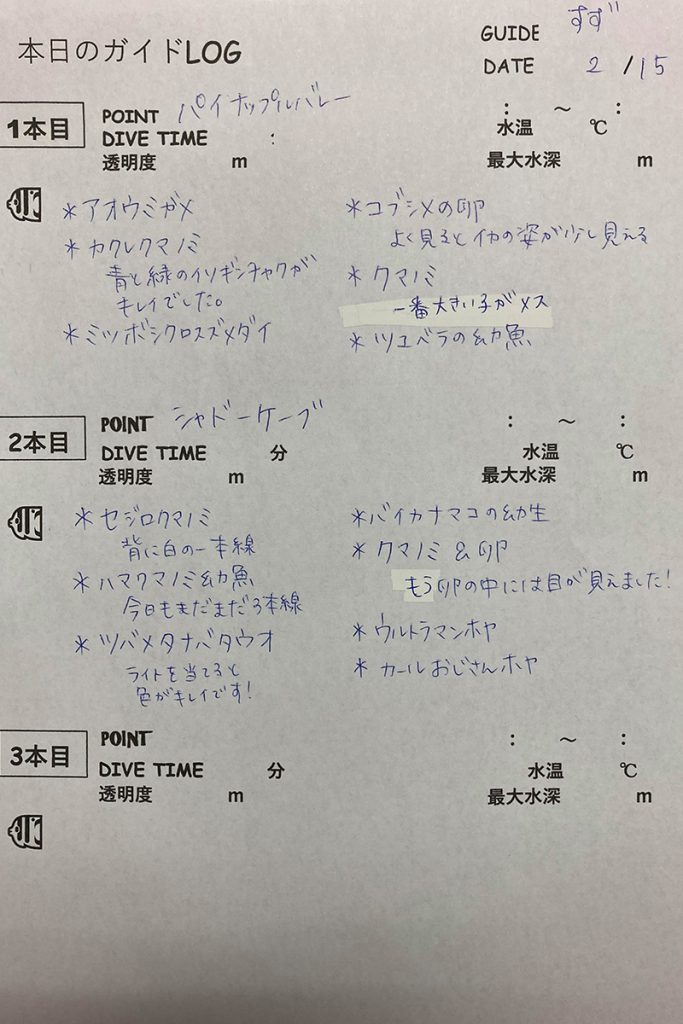 本日のガイドLOG
GUIDE すず
DATE 2/15
1本目
POINT パイナップルバレー
DIVE TIME :
: ～ :
水温 ℃
透明度 m
最大水深 m
*アオウミガメ
*カクレクマノミ
青と緑のイソギンチャクが
キレイでした。
*ミツボシクロスズメダイ
*コブシメの卵
よく見るとイカの姿が少し見える
*クマノミ
一番大きい子がメス
*ツユベラの幼魚
2本目
POINT シャドーケーブ
DIVE TIME 分
: ～ :
水温 ℃
透明度 m
最大水深 m
*セジロクマノミ
背に白の一本線
*ハマクマノミ幼魚
今日もまだまだ3本線
*ツバメタナバタウオ
ライトを当てると
色がキレイです!
*バイカナマコの幼生
*クマノミ&卵
もう卵の中には目が見えました!
*ウルトラマンホヤ
*カールおじさんホヤ
3本目
POINT
DIVE TIME 分
: ～ :
水温 ℃
透明度 m
最大水深 m